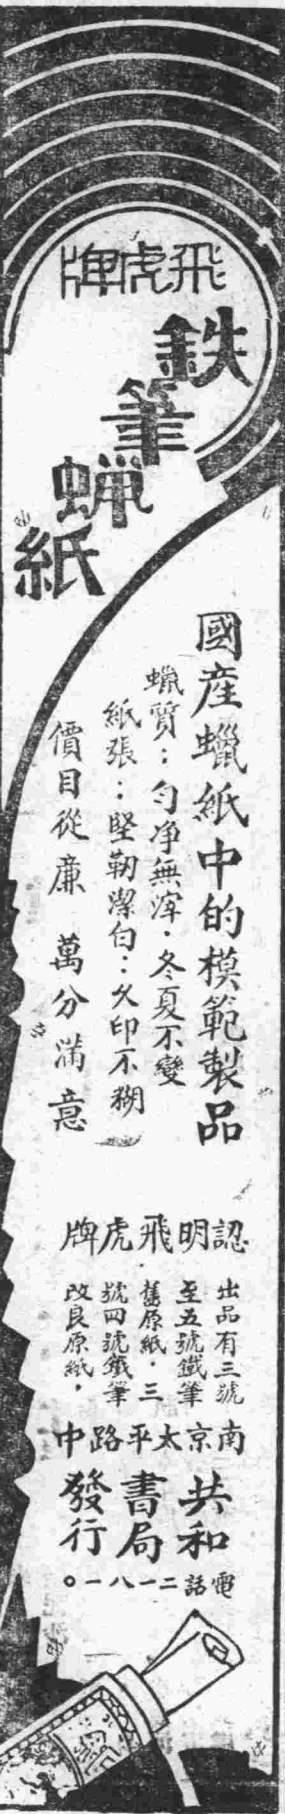 飛虎牌
鉄筆蝋紙
國産蠟紙中的模範製品
蠟質：匀净無滓．冬夏不變
紙張：堅韌潔白：久印不糊
價目從廉 萬分滿意
認明飛虎牌
出品有三號
至五號鐵筆
舊原紙．三
號四號鐵筆
改良原紙，
南京太平路中
共和
書局
發行
電話二一八一。